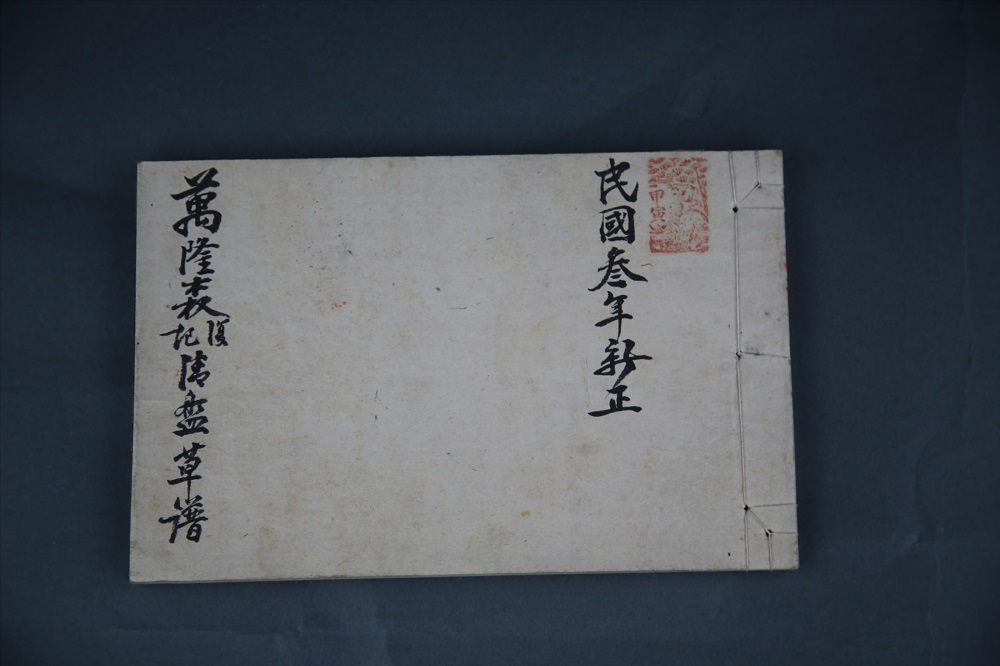 民國叁年新正
甲寅
萬隆森復記清盤草譜